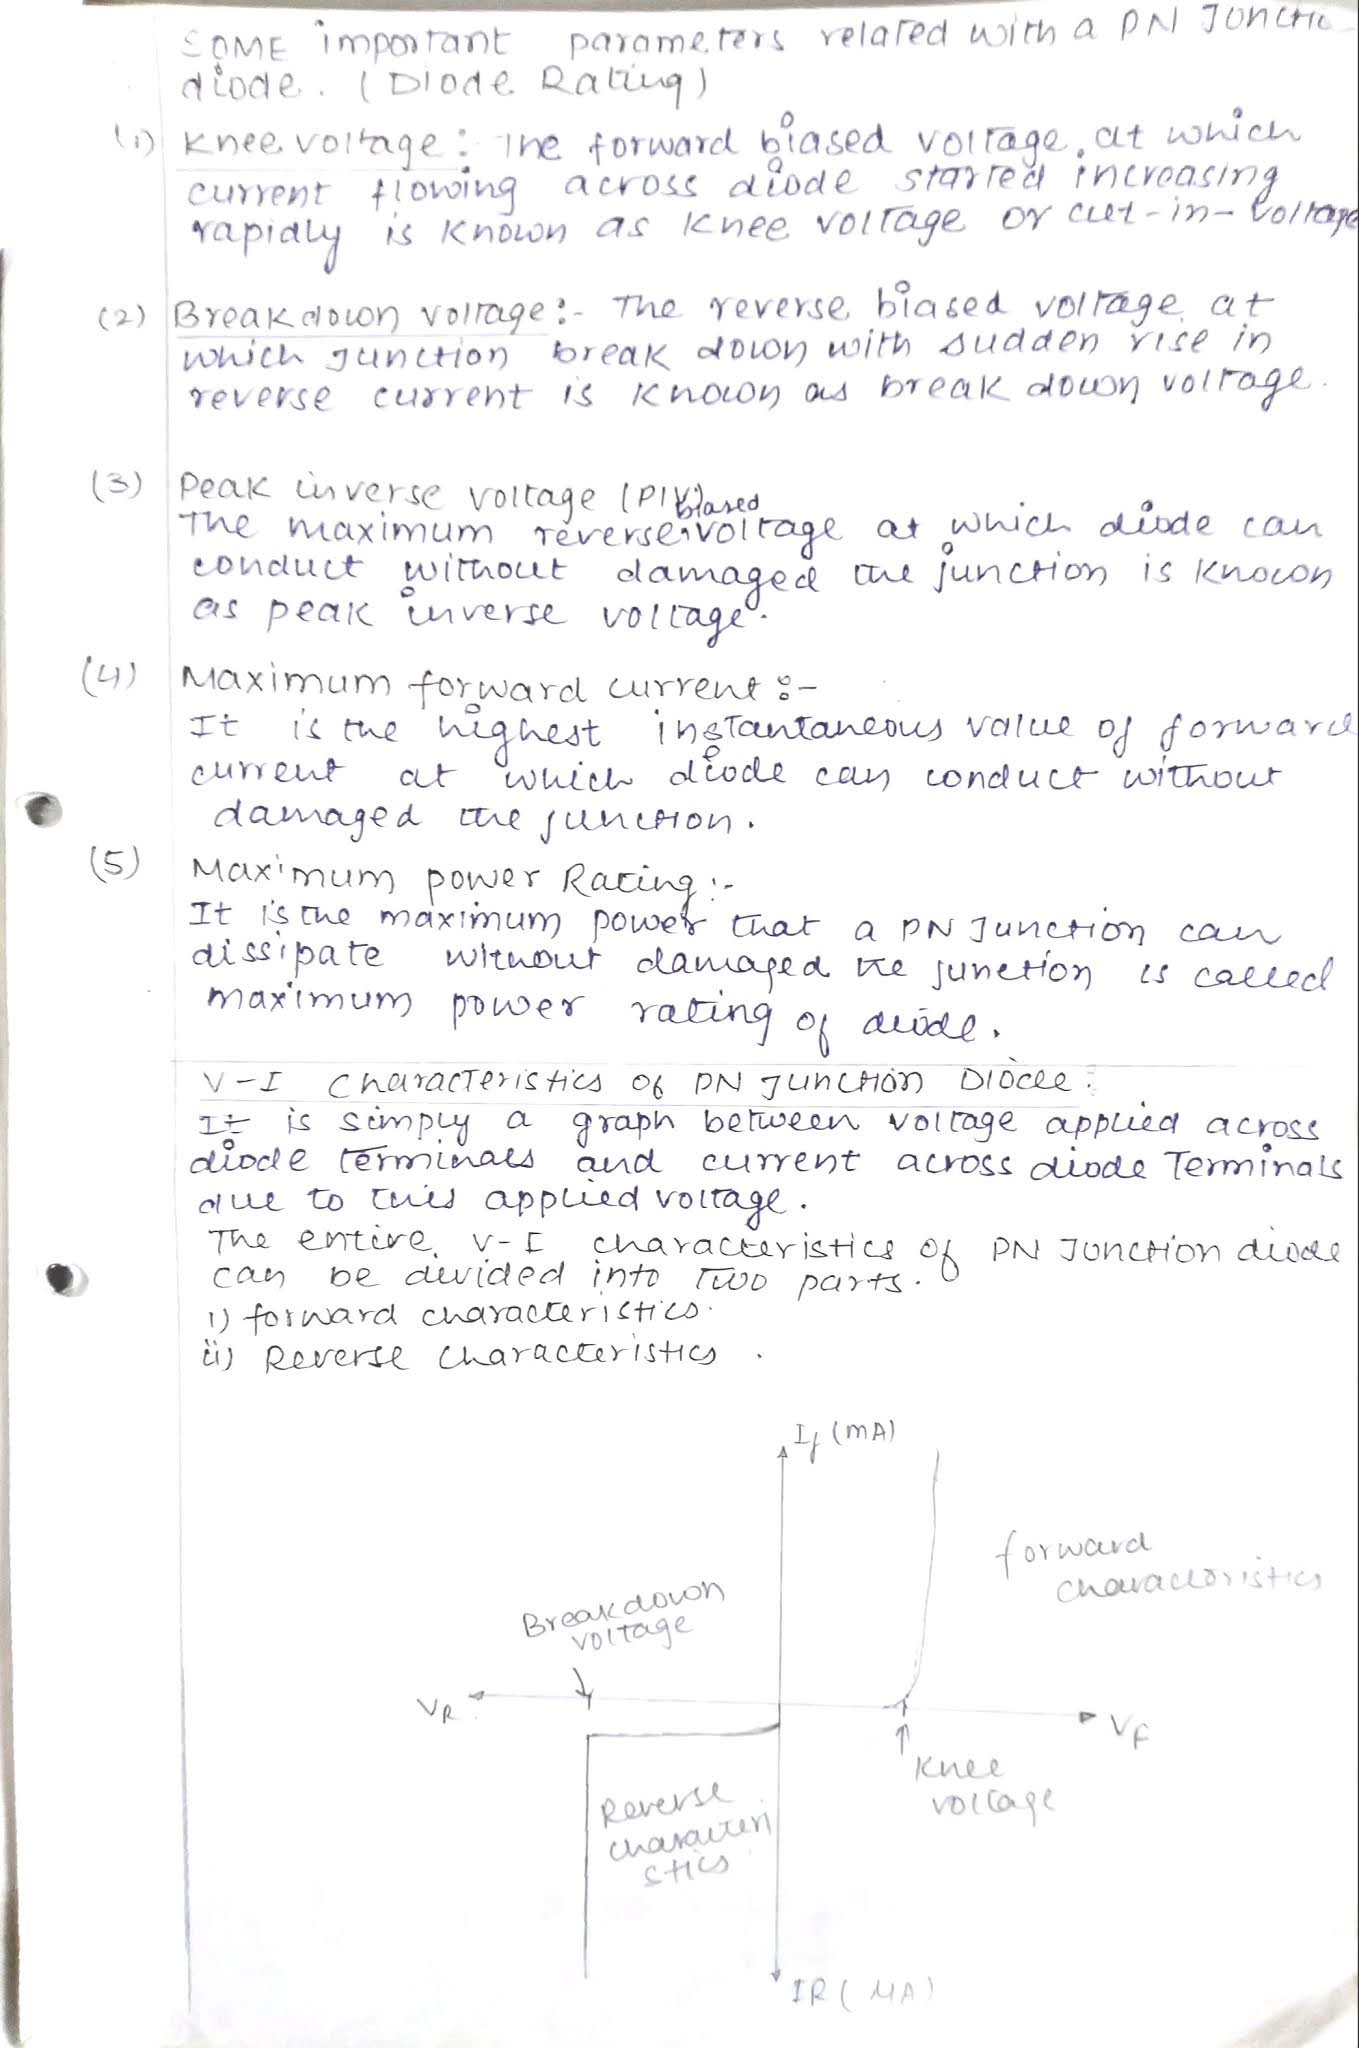 SOME important parameters related with a PN Junctio
diode. (Diode Rating)
(1) Knee voltage: The forward biased voltage, at which
current flowing across diode started increasing
rapidly is known as knee voltage or cut-in-voltage
(2) Breakdown voltage:- The reverse biased voltage at
which junction break down with sudden rise in
reverse current is known as break down voltage.
(3) Peak inverse voltage (PIV)
biased
The maximum reverse voltage at which diode can
conduct without damaged the junction is known
as peak inverse voltage.
(4) Maximum forward current:-
It is the highest instantaneous value of forward
current at which diode can conduct without
damaged the junction.
(5) Maximum power Rating:-
It is the maximum power that a PN Junction can
dissipate without damaged the junction is called
maximum power rating of diode.
V-I Characteristics of PN Junction Diode:
It is simply a graph between voltage applied across
diode terminals and current across diode Terminals
due to this applied voltage.
The entire V-I characteristics of PN Junction diode
can be divided into Two parts.
i) forward characteristics.
ii) Reverse characteristics.
If (mA)
forward
characteristics
Breakdown
voltage
VR
VF
Knee
voltage
Reverse
characteri
stics
IR (μA)